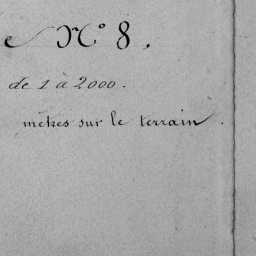 e N° 8.
de 1 à 2000.
mètres sur le terrain.